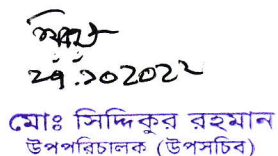 ২৭.১০.২০২২
মোঃ সিদ্দিকুর রহমান
উপপরিচালক (উপসচিব)